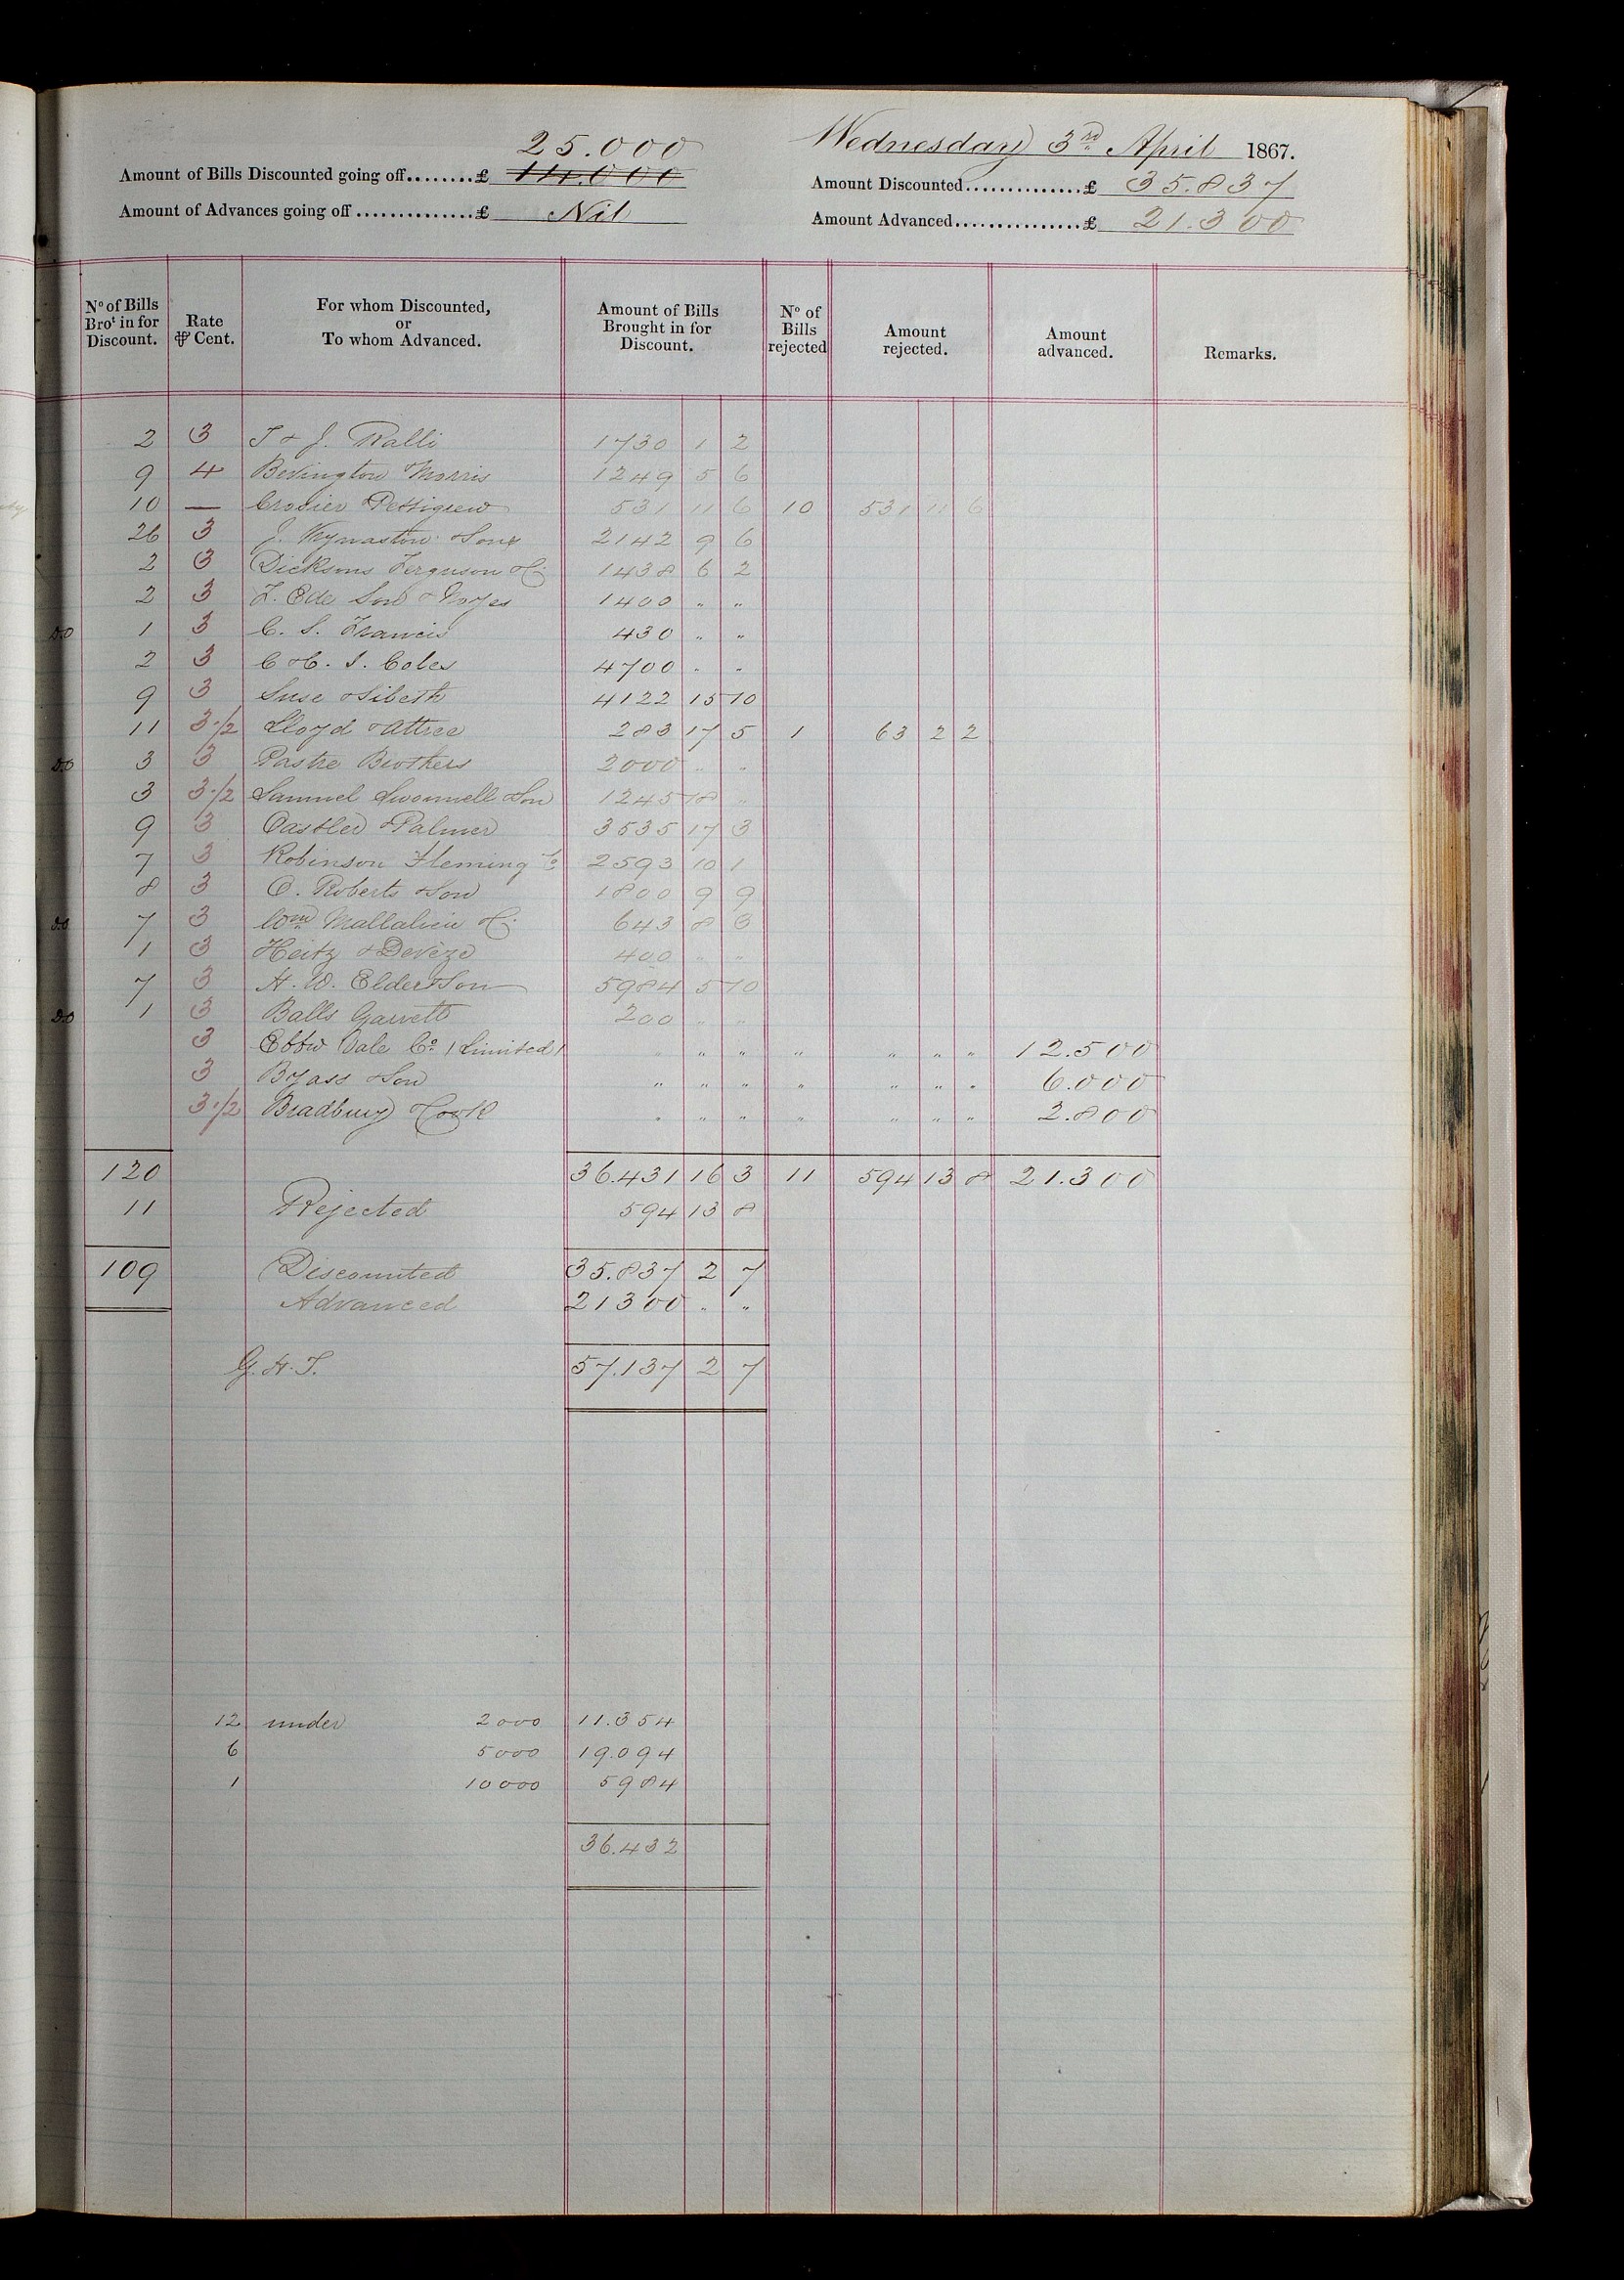 Wednesday 3rd April 1867.
25.000
Amount of Bills Discounted going off........£ 114.000
Amount of Advances going off...............£ Nil
Amount Discounted..............£ 35.837
Amount Advanced...............£ 21.300
No of Bills Brot in for Discount. | Rate ₱ Cent. | For whom Discounted, or To whom Advanced. | Amount of Bills Brought in for Discount. | No of Bills rejected | Amount rejected. | Amount advanced. | Remarks.
2 3 T & J. Ralli 1730 1 2
9 4 Bevington & Morris 1249 5 6
10 — Crosier & Pettigrew 531 11 6 10 531 11 6
26 3 J. Kynaston & Sons 2142 9 6
2 3 Dicksons Ferguson & Co 1438 6 2
2 3 F. Ede Son & Noyes 1400 " "
Do 1 3 C. S. Francis 430 " "
2 3 C & C. I. Coles 4700 " "
9 3 Suse & Sibeth 4122 15 10
11 3·/2 Lloyd & Attree 283 17 5 1 63 2 2
Do 3 3 Pastre Brothers 2000 " "
3 3·/2 Samuel Swonnell & Son 1245 18 "
9 3 Castled & Palmer 3535 17 3
7 3 Robinson Fleming Co 2593 10 1
8 3 O. Roberts & Son 1800 9 9
Do 7 3 Wm Mallalieu & Co 643 8 3
1 3 Heitz & Devèze 400 " "
7 3 H. W. Elder & Son 5984 5 10
Do 1 3 Balls Garrett 200 " "
3 Ebbw Vale Co. (Limited) " " " " " " " 12.500
3 Byass & Son " " " " " " " 6.000
3·/2 Bradbury & Cook " " " " " " " 2.800
120 36.431 16 3 11 594 13 8 21.300
11 Rejected 594 13 8
109 Discounted 35.837 2 7
Advanced 21300 " "
G. H. T. 57.137 2 7
12 under 2000 11.354
6 5000 19.094
1 10000 5984
36.432